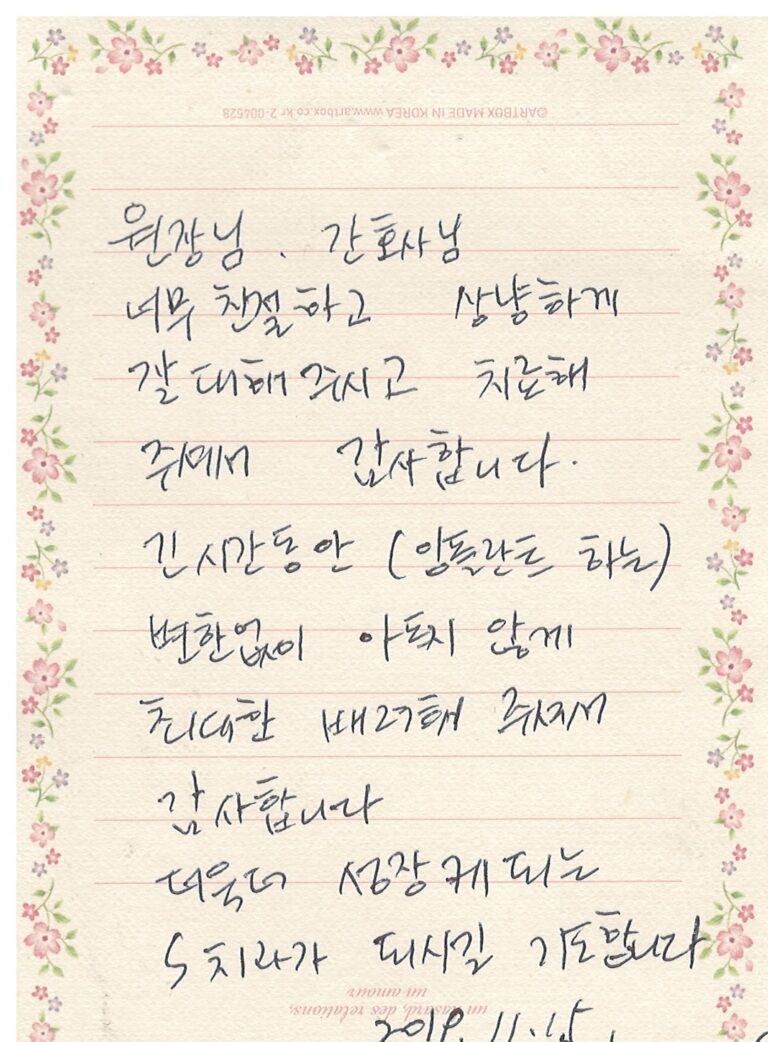 ©ARTBOX MADE IN KOREA www.artbox.co.kr 2-004528
원장님. 간호사님
너무 친절하고 상냥하게
잘 대해주시고 치료해
주셔서 감사합니다.
긴 시간동안 (임플란트 하는)
변한없이 아프지 않게
최대한 배려해 주셔서
감사합니다
더욱더 성장케 되는
S치과가 되시길 기도합니다
un amour
un hasard, des relations,
2019. 11. 15.